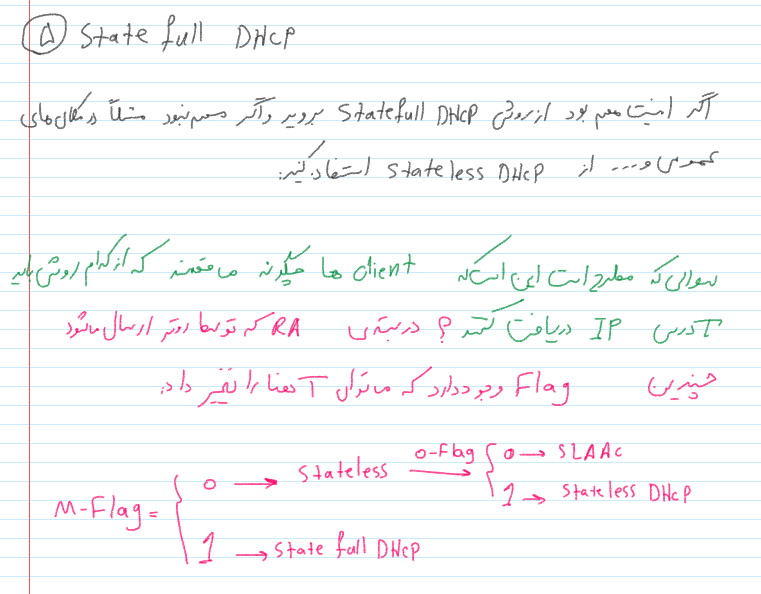 ۵ State full DHCP
اگر امنیت مهم بود از روش Statefull DHCP بروید و اگر مهم نبود مثلاً در مکان های
عمومی و... از Stateless DHCP استفاده کنید.
سوالی که مطرح است این است که client ها چگونه می فهمند که از کدام روش باید
آدرس IP دریافت کنند؟ در بسته ی RA که توسط روتر ارسال می شود
چندین Flag وجود دارد که می توان آنها را تغییر داد.
M-Flag = { 0 → Stateless O-Flag → { 0 → SLAAC
1 → Stateless DHCP
1 → State full DHCP